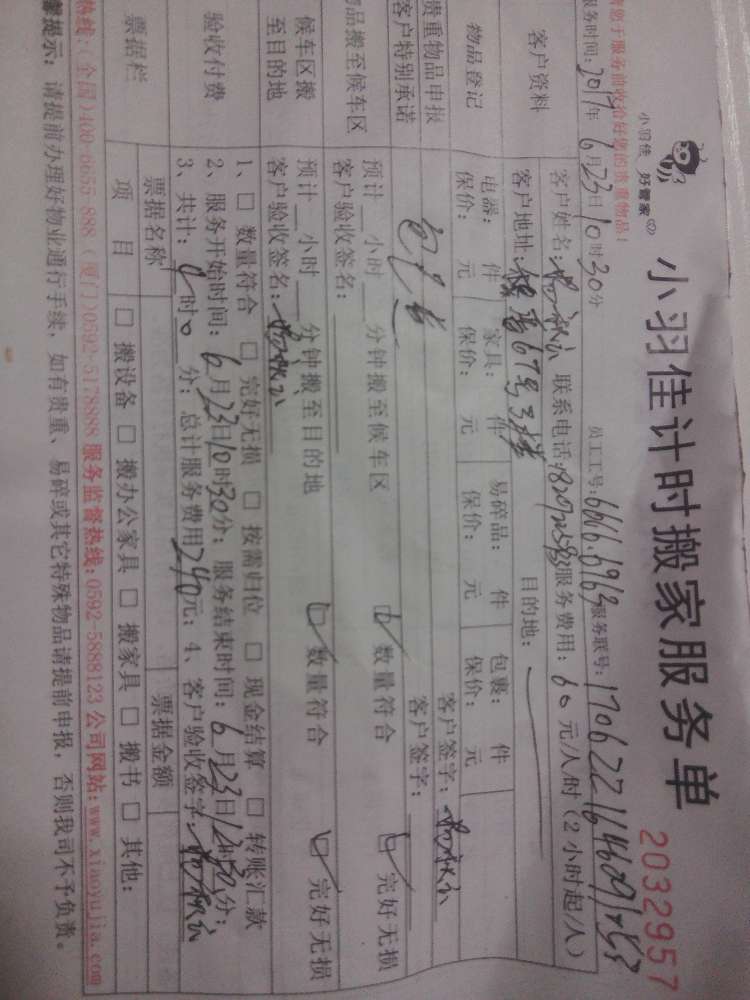 小羽佳 好管家
小羽佳计时搬家服务单
2032957
您于服务前收拾好您的贵重物品!
服务时间: 2017年6月23日10时30分 员工工号: 6616.6963 服务联号:
客户资料
客户姓名: 联系电话: 服务费用: 60元/人时 (2小时起/人)
客户地址: 67号 目的地:
物品登记
电器: 件 家具: 件 易碎品: 件 包裹: 件
保价: 元 保价: 元 保价: 元 保价: 元
客户签字:
贵重物品申报
客户特别承诺
客户签字:
品搬至候车区
预计 小时 分钟搬至候车区 数量符合 完好无损
客户验收签名:
候车区搬
至目的地
预计 小时 分钟搬至目的地 数量符合 完好无损
客户验收签名:
验收付费
1、□ 数量符合 □ 完好无损 □ 按需归位 □ 现金结算 □ 转账汇款
2、服务开始时间: 6月23日10时30分; 服务结束时间: 6月23日12时30分;
3、共计: 时0分; 总计服务费用240元; 4、客户验收签字:
票据栏
票据名称 票据金额
项 目 □ 搬设备 □ 搬办公家具 □ 搬家具 □ 搬书 □ 其他:
热线: (全国)400-6655-888 (厦门)0592-5178888 服务监督热线: 0592-5888123 公司网站: www.xiaoyujia.com
馨提示: 请提前办理好物业通行手续, 如有贵重、易碎或其它特殊物品请提前申报, 否则我司不予负责。